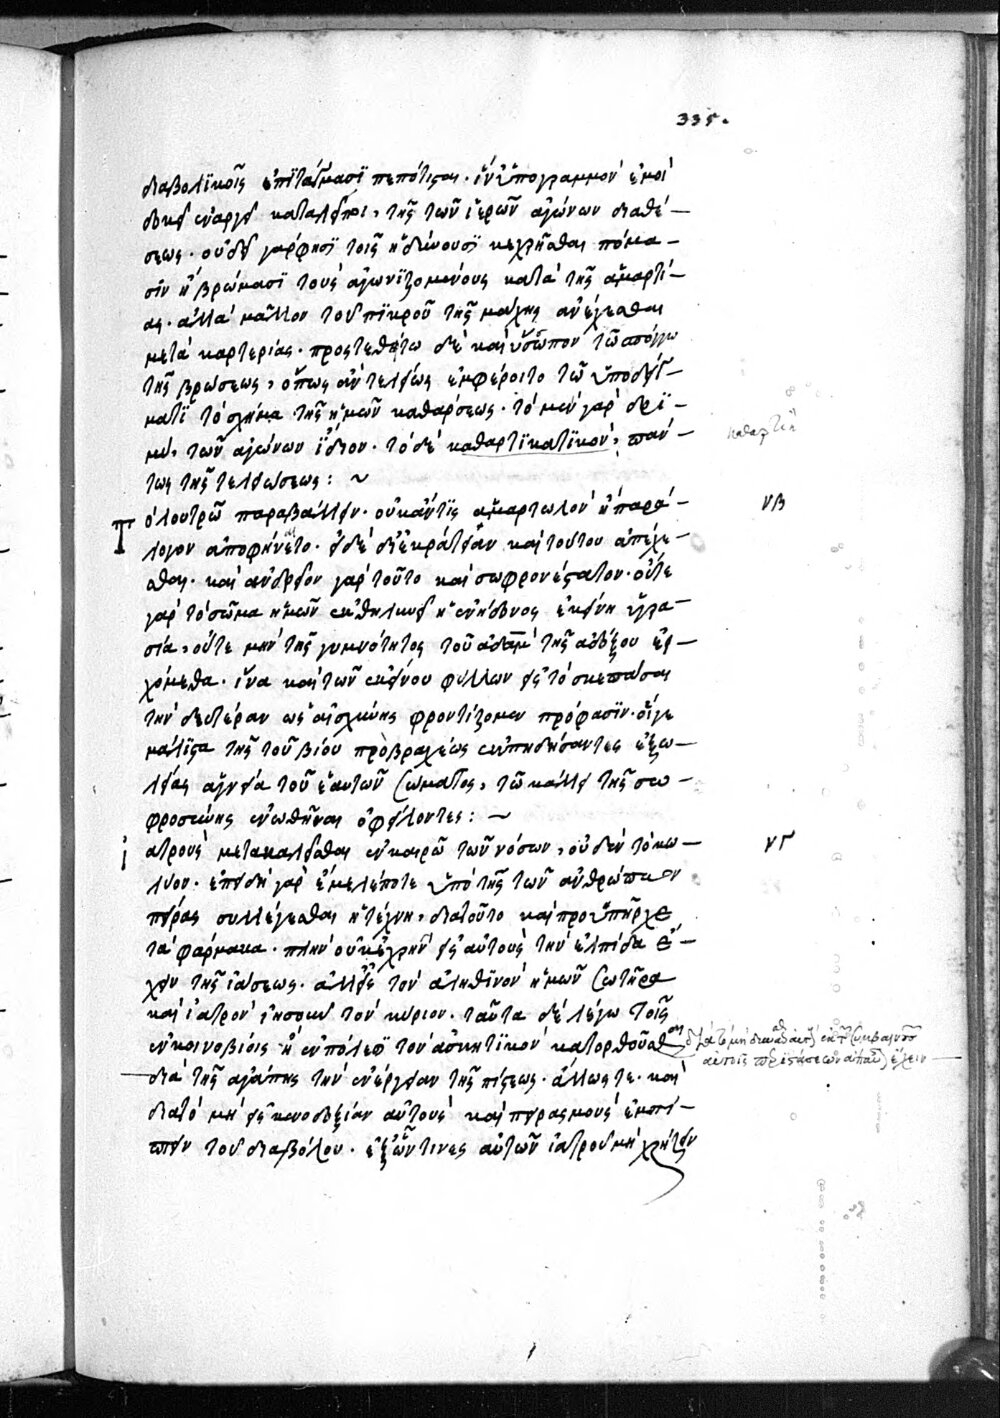 335.
διαβολϊκοῖς ἐπϊτάγμασϊ πεπότισαι. ἵν' ὑπογραμμὸν ἐμοὶ
δοκεῖ ἐναργῆ καταλείποι, τῆς τῶν ἱερῶν ἀγώνων διαθέ-
σεως. οὐ δεῖ γὰρ φησϊ τοῖς ἡδύνουσϊ κεχρῆσθαι πόμα-
σϊν ἢ βρώμασϊ τοὺς ἀγωνϊζομένους κατὰ τῆς ἁμαρτί-
ας. ἀλλὰ μᾶλλον τοῦ πϊκροῦ τῆς μάχης ἀνέχεσθαι
μετὰ καρτερίας. προστεθήτω δὲ καὶ ὕσσωπον τῶ σπόγγω
τῆς βρώσεως, ὅπως ἂν τελείως ἐμφέροιτο τῶ ὑποδείγ-
ματϊ τὸ σχῆμα τῆς ἡμῶν καθαρσεως. τὸ μὲν γὰρ δρϊ-
μὺ, τῶν ἀγώνων ἴδιον. τὸ δὲ καθαρτϊκατϊκὸν, πάν-
τως τῆς τελειώσεως: ~
Τ
ὸ λουτρῶ παραβάλλειν. οὐκ ἄν τϊς ἁμαρτωλὸν ἢ παρά-
λογον ἀποφήνετο. εἰ δὲ δι' ἐκράτειαν καὶ τούτου ἀπέχε-
σθαι. καὶ ἀνδρεῖον γὰρ τοῦτο καὶ σωφρονέστατον. οὔτε
γὰρ τὸ σῶμα ἡμῶν ἐκθηλύνει ἡ ἐνήδονος ἐκείνη ὑγρα-
σία, οὔτε μὴν τῆς γυμνότητος τοῦ ἀδὰμ τῆς ἀδόξου ἐρ-
χόμεθα. ἵνα καὶ τῶν ἐκείνου φύλλων εἰς τὸ σκεπᾶσαι
τὴν δευτέραν ὡς αἰσχύνης φροντίζομεν πρόφασϊν. οἵγε
μάλϊστα τῆς τοῦ βίου προβραχέως ἐκπηδήσαντες ἐξω-
λείας ἁγνεία τοῦ ἑαυτῶν σώματος, τῶ κάλλει τῆς σω-
φροσύνης ἑνωθῆναι ὀφείλοντες: ~
ἰ
ατροὺς μετακαλεῖσθαι ἐν καιρῶ τῶν νόσων, οὐδὲν τὸ κω-
λύον. ἐπειδὴ γὰρ ἔμελέ ποτε ὑπὸ τῆς τῶν ἀνθρώπων
πείρας συλλέγεσθαι ἡ τέχνη, διὰ τοῦτο καὶ προϋπῆρχε
τὰ φάρμακα. πλὴν οὐκ ἐχρῆν εἰς αὐτοὺς τὴν ἐλπίδα ἔ-
χειν τῆς ἰάσεως. ἀλλ' εἰς τὸν ἀληθϊνὸν ἡμῶν σωτῆρα
καὶ ἰατρὸν ἰησοῦν τὸν κύριον. ταῦτα δὲ λέγω τοῖς
ἐν κοινοβίοις ἢ ἐν πόλεσϊ τὸν ἀσκητϊκὸν κατορθοῦσθ
διὰ τῆς ἀγάπης τὴν ἐνέργειαν τῆς πίστεως. ἄλλως τε. καὶ
διὰ τὸ μὴ εἰς κενοδοξίαν αὐτοὺς καὶ πειρασμοὺς ἐμπί-
πτειν τοῦ διαβόλου. ἐξ ὧν τινες αὐτῶν ἰατροῦ μὴ χρήζειν
καθαρτικ
νβ
νγ